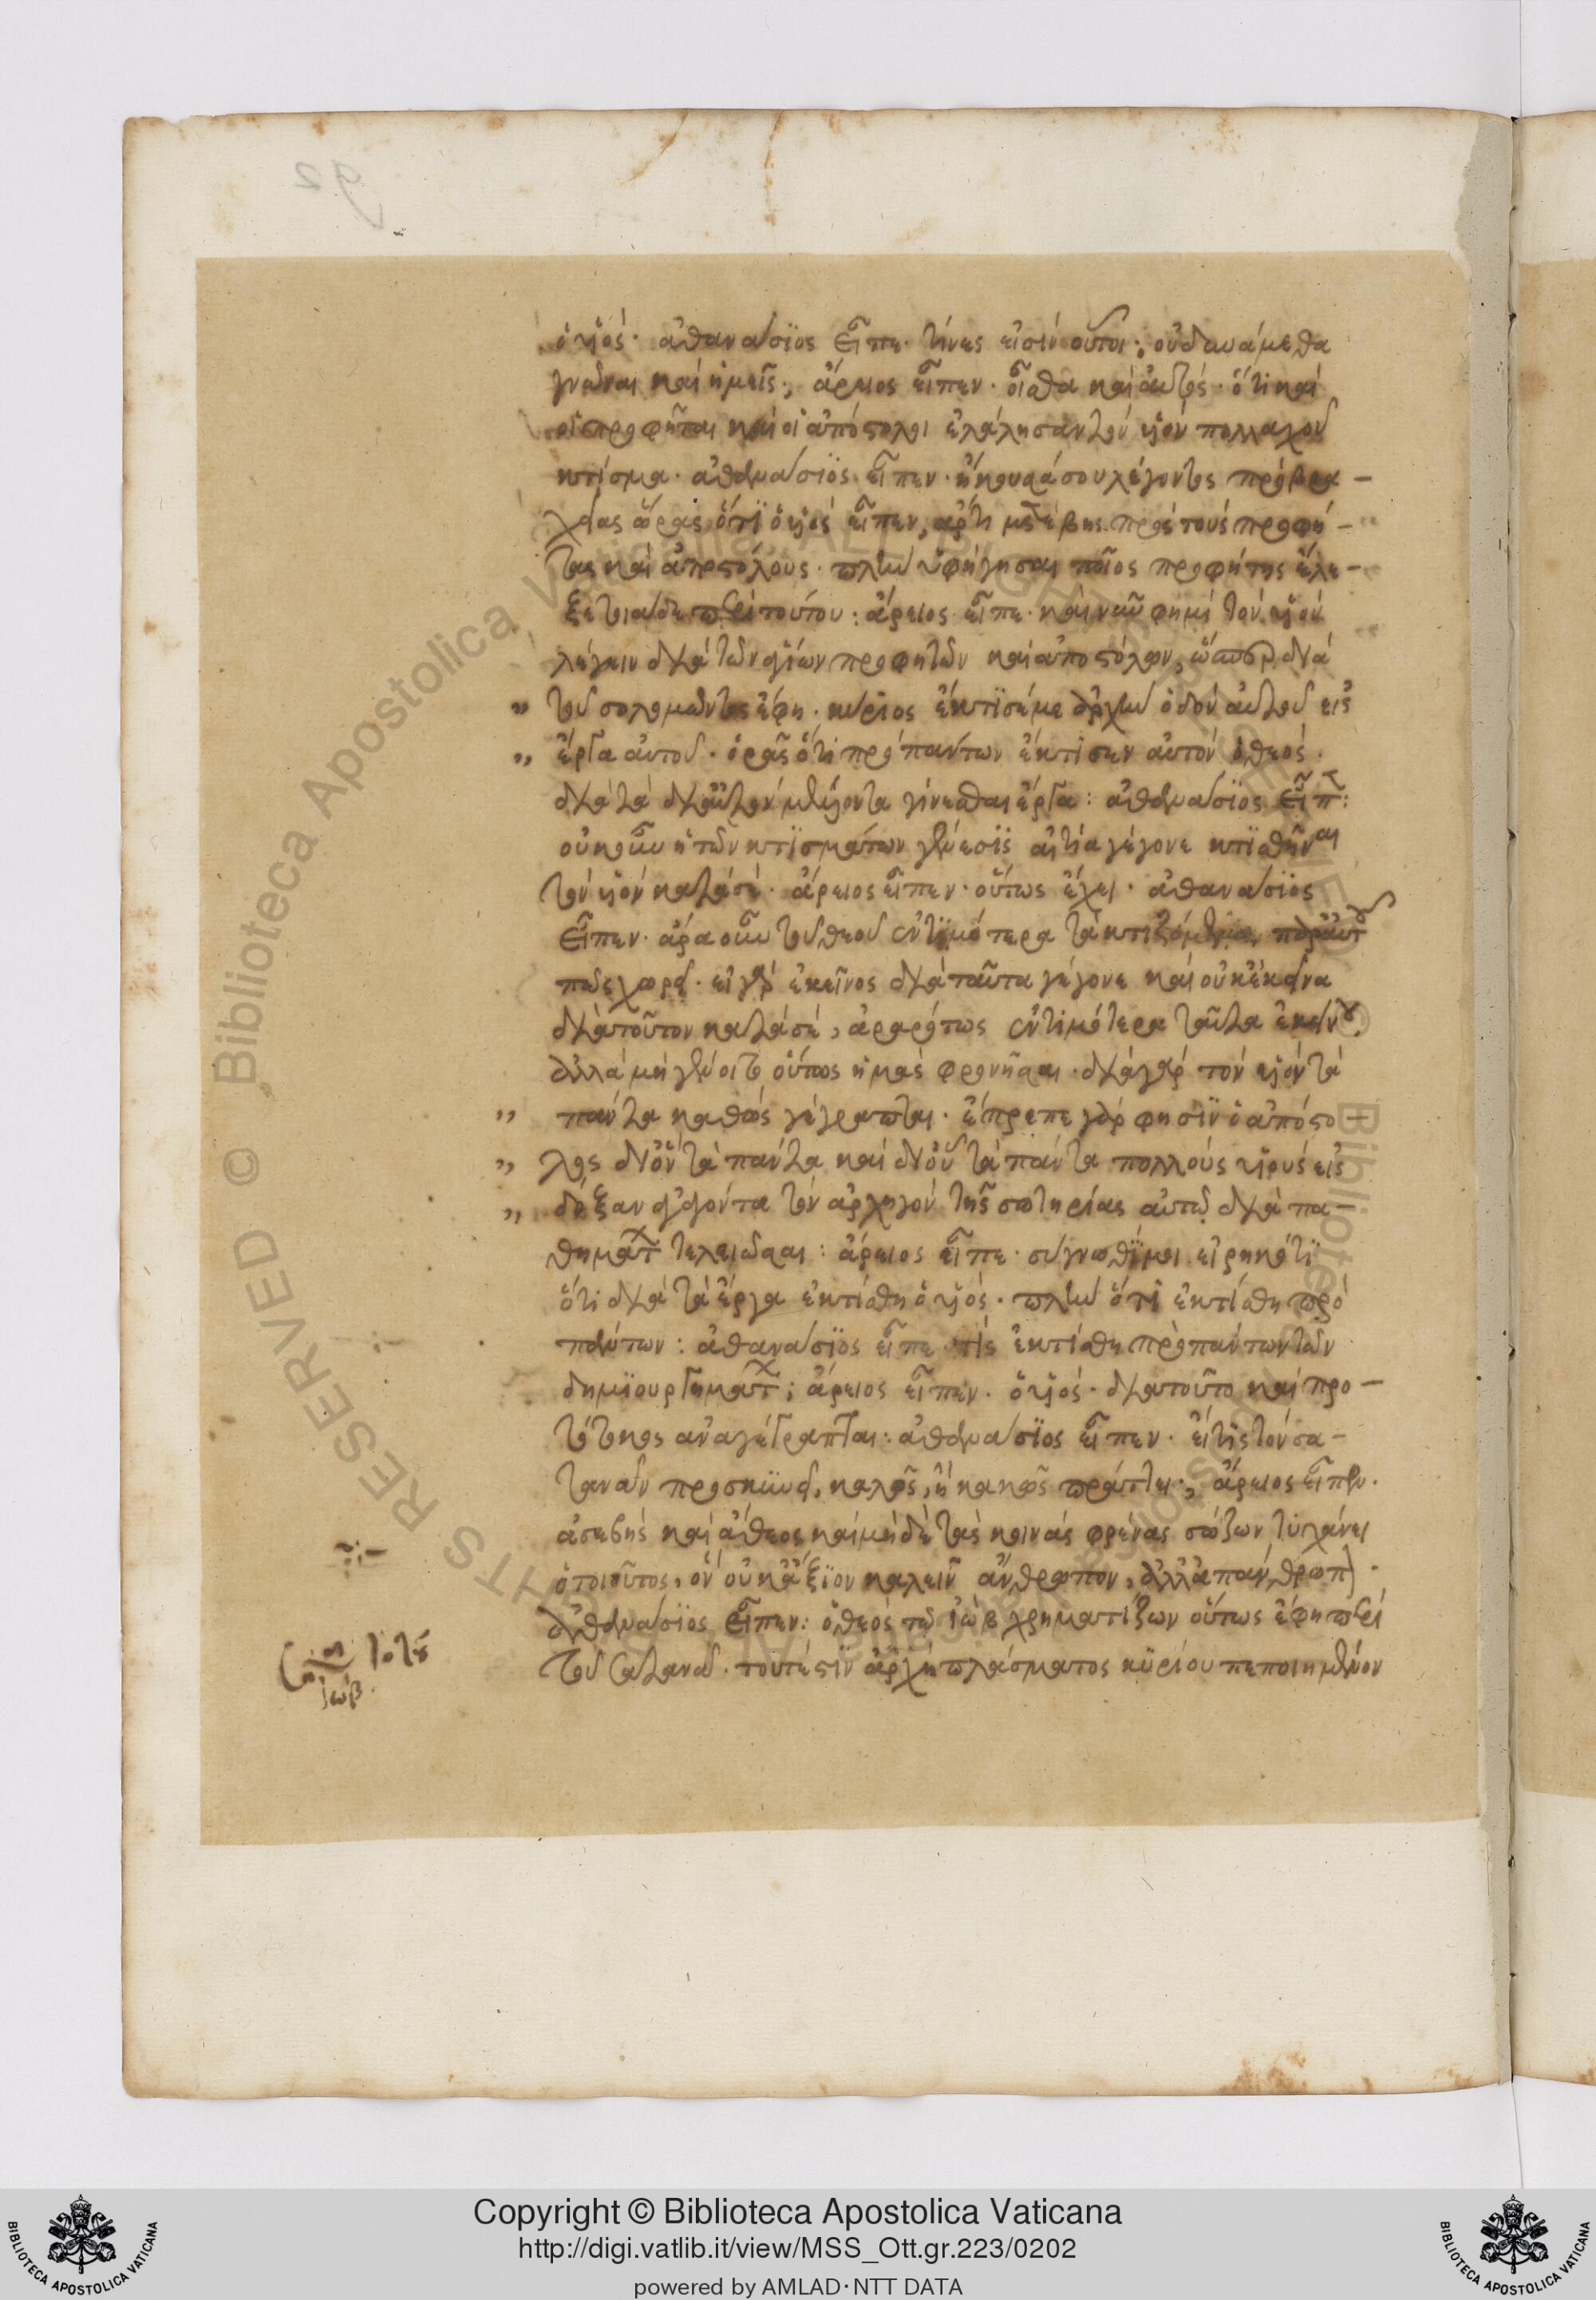 92
ὁ υἱός· ἀθανάσϊος εἶπε· τίνες εἰσίν οὗτοι; οὐ δυνάμεθα
γνῶναι καί ἡμεῖς; ἄρειος εἶπεν· οἶσθα καί αὐτός· ὅτι καί
οἱ προφῆται καί οἱ ἀπόστολοι ἐλάλησαν τόν υἱόν πολλαχοῦ
κτίσμα· ἀθανάσϊος εἶπεν· ἤκουσά σου λέγοντος πρό βρα-
χείας ὥρας ὅτϊ ὁ υἱός εἶπεν, ἄρτι μετέβης πρός τούς προφή-
τας καί ἀποστόλους· πλήν ὑφήγησαι ποῖος προφήτης ἔλε-
ξε τοιάδε περί τούτου: ἄρειος εἶπε· καί νῦν φημί τόν υἱόν
λέγειν διά τῶν ἁγίων προφητῶν καί ἀποστόλων, ὥσπερ διά
" τοῦ σολομῶντος ἔφη· κύριος ἔκτϊσέ με ἀρχήν ὁδόν αὐτοῦ εἰς
" ἔργα αὐτοῦ· ὁρᾶς ὅτι πρό πάντων ἔκτισεν αὐτόν ὁ θεός·
διά τά δι' αὐτόν μέλλοντα γίνεσθαι ἔργα: ἀθανάσϊος εἶπ:
οὐκοῦν ἡ τῶν κτϊσμάτων γένεσϊς αἰτία γέγονε κτϊσθῆναι
τόν υἱόν κατά σέ· ἄρειος εἶπεν· οὕτως ἔχει· ἀθανάσϊος
εἶπεν· ἆρα οὖν τοῦ θεοῦ ἐντϊμότερα τά κτιζόμενα παρ' αὐτοῦ
πῶς χωρεῖ· εἰ γάρ ἐκεῖνος διά ταῦτα γέγονε καί οὐκ ἐκεῖνα
διά τοῦτον κατά σέ, ἀραρότως ἐντιμότερα ταῦτα ἐκείνου
ἀλλά μή γένοιτο οὕτως ἡμᾶς φρονῆσαι· διά γάρ τόν υἱόν τά
" πάντα καθώς γέγραπται· ἔπρεπε γάρ φησϊν ὁ ἀπόστο
" λος δι' ὅν τά πάντα καί δι' οὗ τά πάντα πολλούς υἱούς εἰς
" δόξαν ἀγαγόντα τόν ἀρχηγόν τῆς σωτηρίας αὐτῶν διά πα-
θημάτων τελειῶσαι: ἄρειος εἶπε· συγνωθϊ μοι εἰρηκότϊ
ὅτι διά τά ἔργα ἐκτίσθη ὁ υἱός· πλήν ὅτι ἐκτίσθη πρό
πάντων: ἀθανάσϊος εἶπε· τίς ἐκτίσθη πρό πάντων τῶν
δημϊουργημάτων; ἄρειος εἶπεν· ὁ υἱός· διά τοῦτο καί πρω-
τότοκος ἀναγέγραπται: ἀθανάσϊος εἶπεν· εἴ τϊς τόν σα-
τανᾶν προσκϋνεῖ, καλῶς, ἤ κακῶς πράττει; ἄρειος εἶπεν·
ἀσεβής καί ἄθεος καί μηδέ τάς κοινάς φρένας σώζων τυγχάνει
ὁ τοιοῦτος, ὅν οὐκ ἄξϊον καλεῖν ἄνθρωπον, ἀλλ' ἀπάνθρωπον·
ἀθανάσϊος εἶπεν: ὁ θεός τῷ ἰώβ χρηματίζων οὕτως ἔφη περί
τοῦ σατανᾶ· τοῦτ' ἔστϊν ἀρχή πλάσματος κϋρίου πεποιημένον
ἰώβ
Copyright © Biblioteca Apostolica Vaticana
http://digi.vatlib.it/view/MSS_Ott.gr.223/0202
powered by AMLAD·NTT DATA